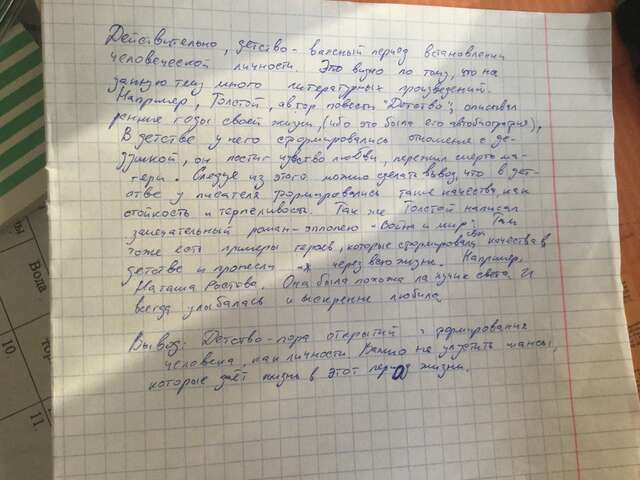 Действительно, детство - важный период встановлении
человеческой личности. Это видно по тому, что на
данную тему много литературных произведений.
Например, Толстой, автор повести "Детство", описывал
ранние годы своей жизни, (ибо это была его автобиография),
В детстве у него сформировались отношения с де-
душкой, он постиг чувство любви, пережил смерть ма-
тери. Следуя из этого можно сделать вывод, что в дет-
стве у писателя формировались такие качества, как
стойкость и терпеливость. Так же Толстой написал
замечательный роман-эпопею - "Война и мир". Там
тоже есть примеры героев, которые сформировали свои качества в
детстве и пронесли их через всю жизнь. Например,
Наташа Ростова. Она была похожа на лучик света. И
всегда улыбалась и искренне любила.
Вывод: Детство - пора открытий и формирования
человека, как личности. Важно не упустить шансы,
которые даёт жизнь в этот период жизни.
Вода
10
11